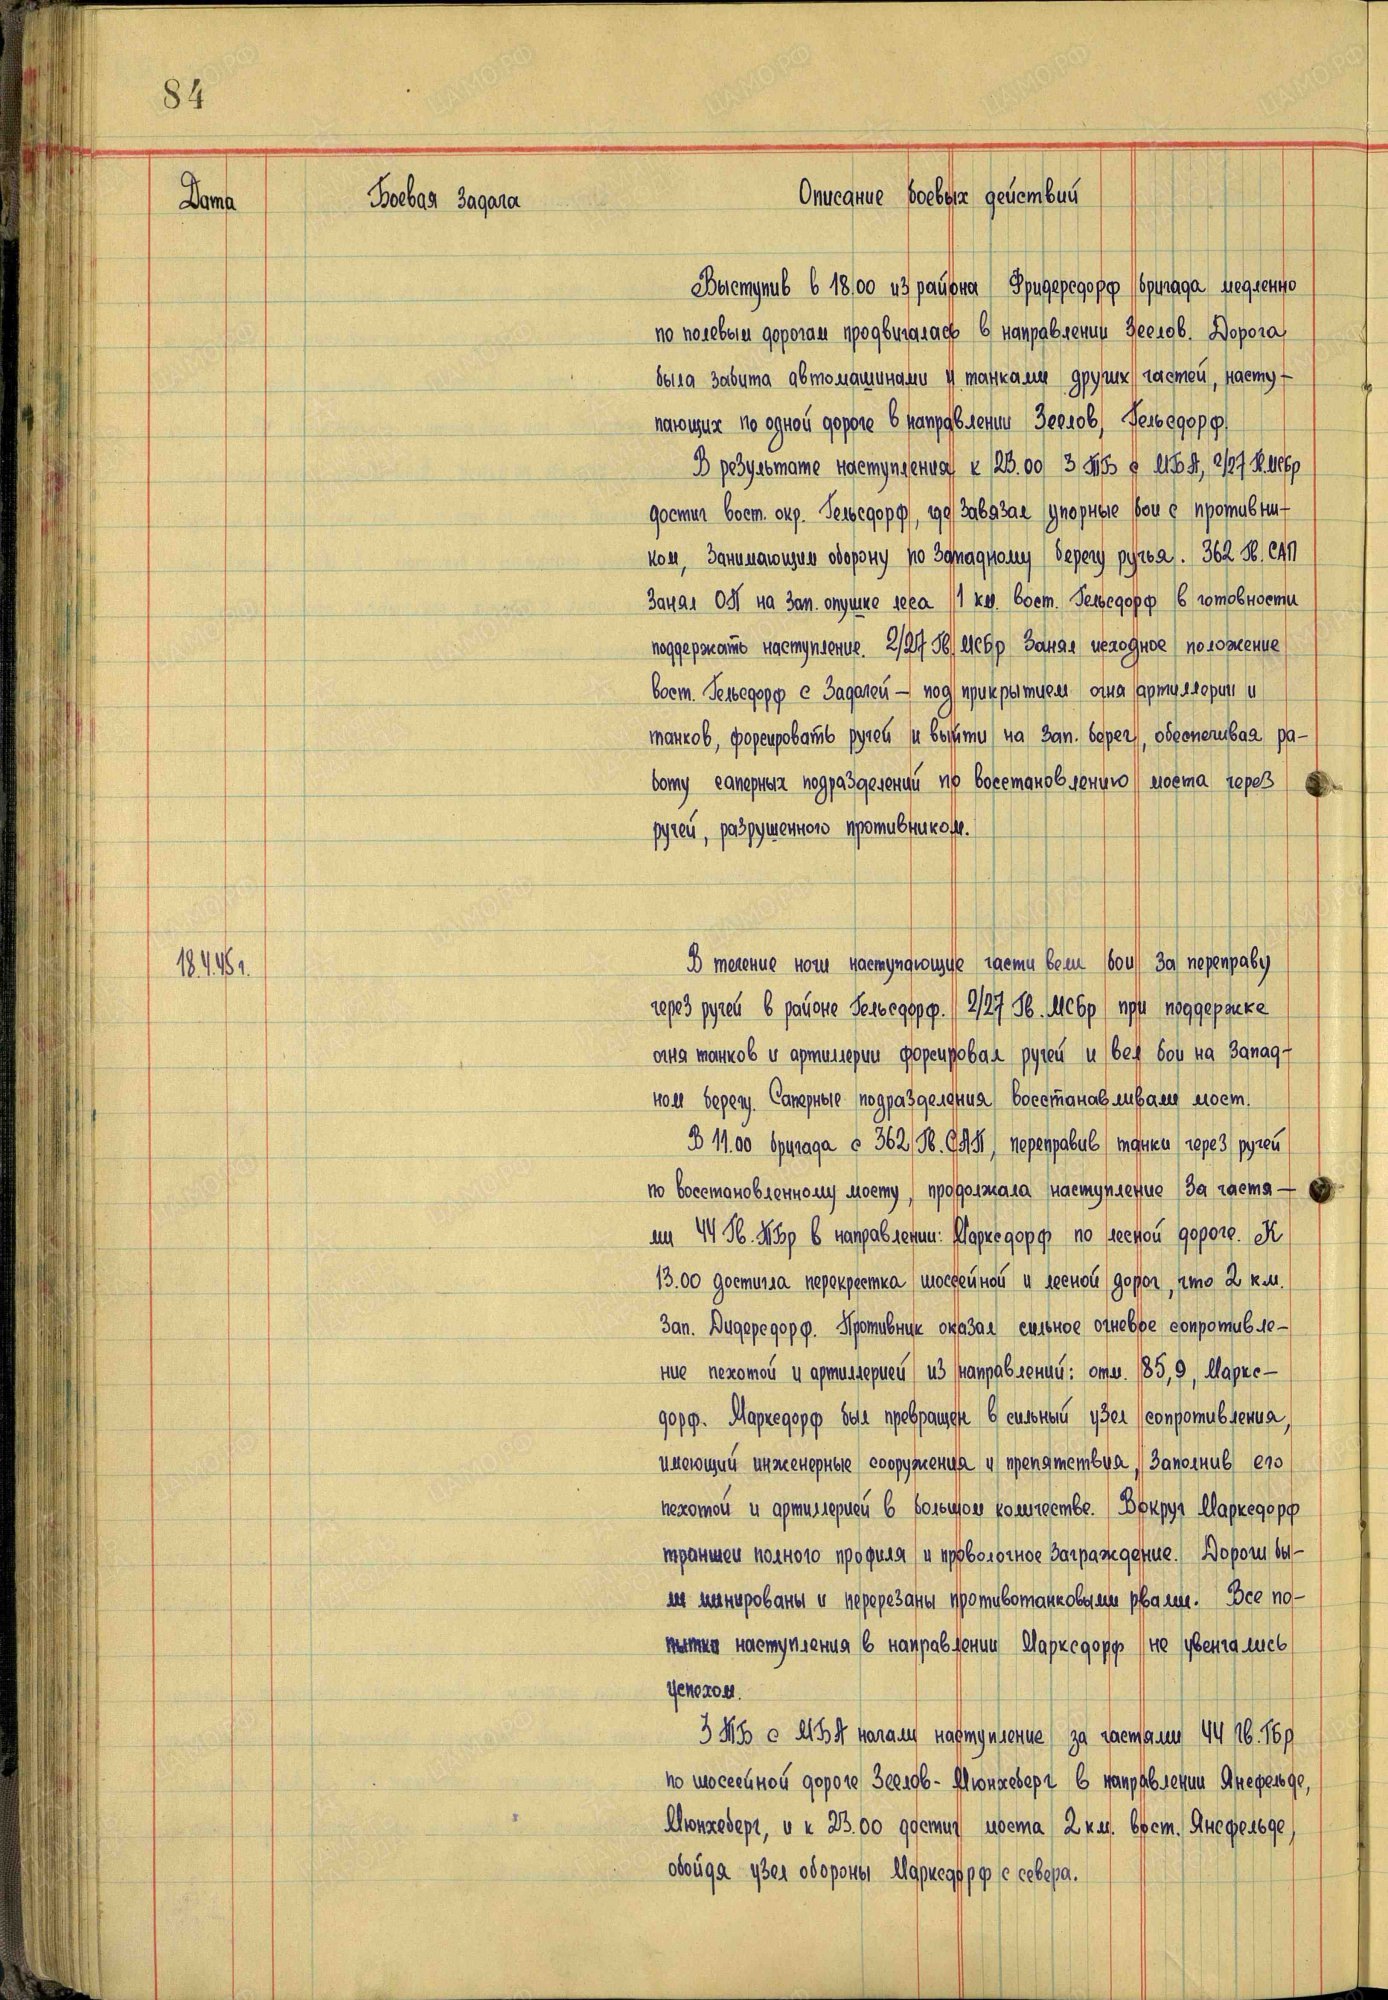 84
Дата Боевая задача Описание боевых действий
Выступив в 18.00 из района Фридерсдорф бригада медленно
по полевым дорогам продвигалась в направлении Зеелов. Дорога
была забита автомашинами и танками других частей, насту-
пающих по одной дороге в направлении Зеелов, Гельсдорф.
В результате наступления к 23.00 3 ТБ с МБА, 2/27 Гв. МСБр
достиг вост. окр. Гельсдорф, где завязал упорные бои с противни-
ком, занимающим оборону по западному берегу ручья. 362 Гв. САП
занял ОП на зап. опушке леса 1 км. вост. Гельсдорф в готовности
поддержать наступление. 2/27 Гв. МСБр занял исходное положение
вост. Гельсдорф с задачей – под прикрытием огня артиллерии и
танков, форсировать ручей и выйти на зап. берег, обеспечивая ра-
боту саперных подразделений по восстановлению моста через
ручей, разрушенного противником.
18.4.45 г.
В течение ночи наступающие части вели бои за переправу
через ручей в районе Гельсдорф. 2/27 Гв. МСбр при поддержке
огня танков и артиллерии форсировал ручей и вел бои на запад-
ном берегу. Саперные подразделения восстанавливали мост.
В 11.00 бригада с 362 Гв. САП, переправив танки через ручей
по восстановленному мосту, продолжала наступление за частя-
ми 44 Гв. ТБр в направлении: Марксдорф по лесной дороге. К
13.00 достигла перекрестка шоссейной и лесной дорог, что 2 км.
зап. Дидерсдорф. Противник оказал сильное огневое сопротивле-
ние пехотой и артиллерией из направлений: отм. 85,9, Маркс-
дорф. Марксдорф был превращен в сильный узел сопротивления,
имеющий инженерные сооружения и препятствия, заполнив его
пехотой и артиллерией в большом количестве. Вокруг Марксдорф
траншеи полного профиля и проволочное заграждение. Дороги бы-
ли минированы и перерезаны противотанковыми рвами. Все по-
пытки наступления в направлении Марксдорф не увенчались
успехом.
3 ТБ с МБА начали наступление за частями 44 Гв. ТБр
по шоссейной дороге Зеелов- Мюнхеберг в направлении Янсфельде,
Мюнхеберг, и к 23.00 достиг моста 2 км. вост. Янсфельде,
обойдя узел обороны Марксдорф с севера.